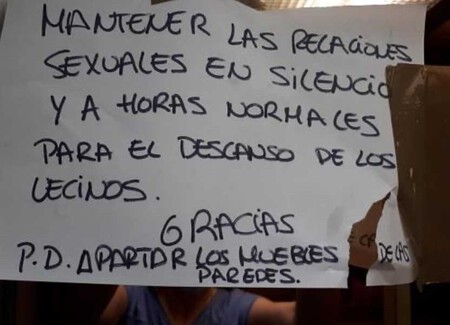 MANTENER LAS RELACIONES
SEXUALES EN SILENCIO
Y A HORAS NORMALES
PARA EL DESCANSO DE LOS
VECINOS.
GRACIAS
P.D. APARTAR LOS MUEBLES DE LAS
PAREDES.